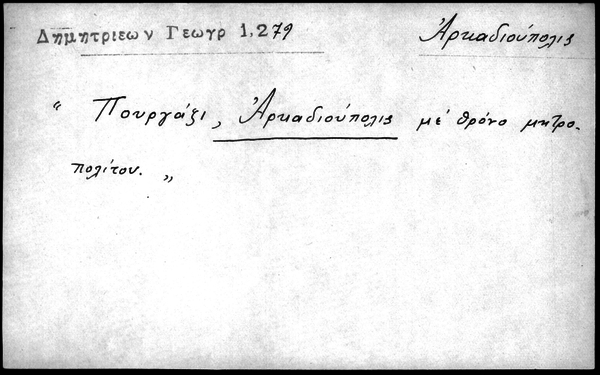 Δημητριεων Γεωγρ 1,279
Ἀρκαδιούπολις
“ Πουργάζι, Ἀρκαδιούπολις μέ θρόνο μητρο-
πολίτου. „